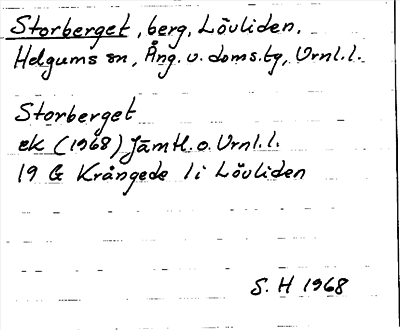 Storberget, berg, Lövliden,
Helgums sn, Ång. v. doms.tg, Vrnl.l.
Storberget
ek (1968) Jämtl. o. Vrnl.l.
19 G Krångede 1i Lövliden
S. H 1968